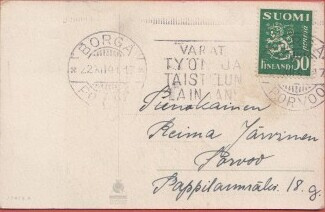 BORGÅ
VARAT
TYÖ JA
TAISTELUN
LAINAAN
SUOMI
FINLAND 50
PORVOO
Pienokainen
Reima Järvinen
Porvoo
18. g.